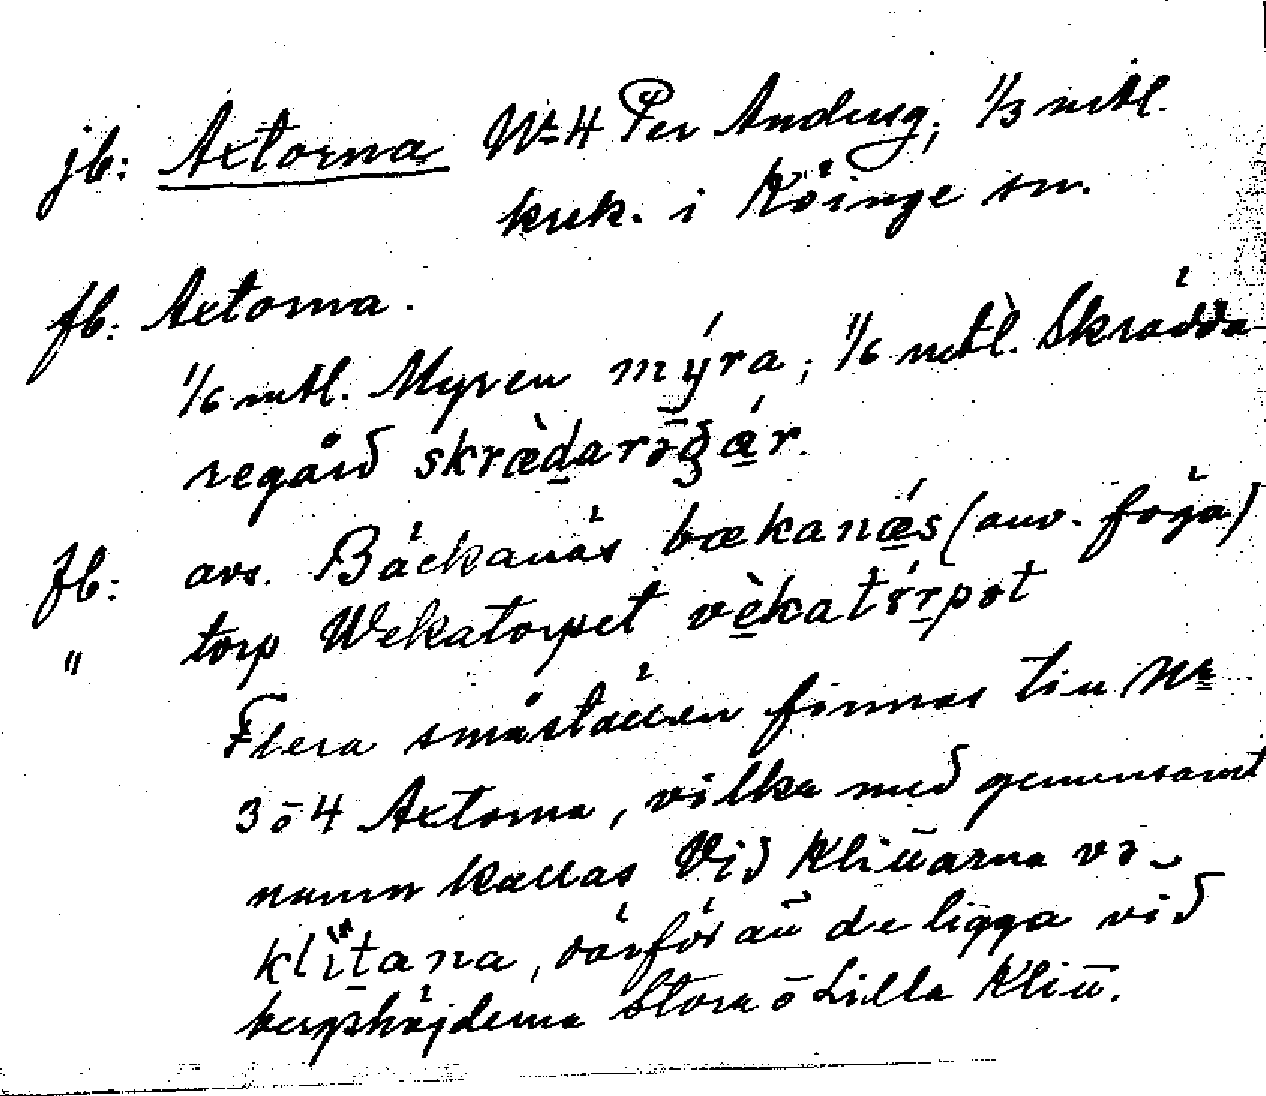 jb: Axtorna Nr 4 Per Anders g, 1/3 mtl.
krsk. i Köinge sn.
fb: Axtorna.
1/6 mtl. Myren mýra, 1/6 mtl. Skrädda-
regård skræ̀darəgár.
fb: avs. Bäckanäs bækanǽs (anv. föga)
" torp Wekatorpet vèkatórpət
Flera småställen finnas till Nr
3 o 4 Axtorna, vilka med gemensamt
namn kallas Vid Klittarna və
klítana, därför att de ligga vid
bergshöjderna Stora o Lilla Klitt.